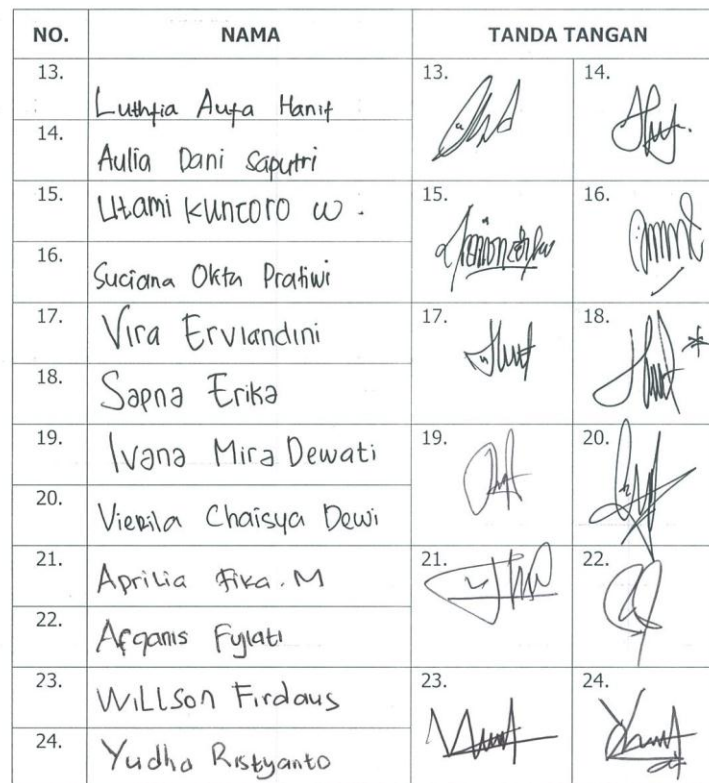 NO. NAMA TANDA TANGAN
13. Luthfia Aufa Hanif 13. 14.
14. Aulia Dani Saputri
15. Utami Kuncoro W. 15. 16.
16. Suciana Okta Pratiwi
17. Vira Erviandini 17. 18.
18. Sapna Erika
19. Ivana Mira Dewati 19. 20.
20. Chaisya Dewi
21. Aprilia Fika. M 21. 22.
22. Afqanis
23. Willson Firdaus 23. 24.
24. Yudha Ristyanto